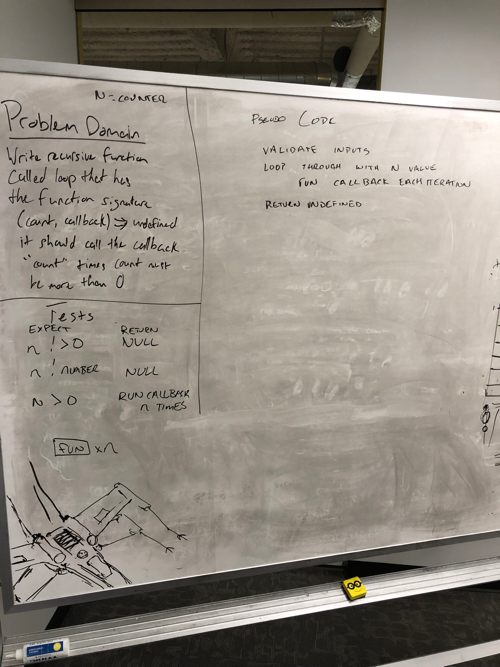 N = COUNTER
Problem Domain
Write recursive function
Called loop that has
the function signature
(count, callback) => undefined
it should call the callback
"count" times count must
be more than 0
Tests
EXPECT RETURN
n ! > 0 NULL
n ! NUMBER NULL
N > 0 RUN CALLBACK
n TIMES
FUN x n
PSEUDO CODE
VALIDATE INPUTS
LOOP THROUGH WITH N VALUE
FUN CALLBACK EACH ITERATION
RETURN UNDEFINED